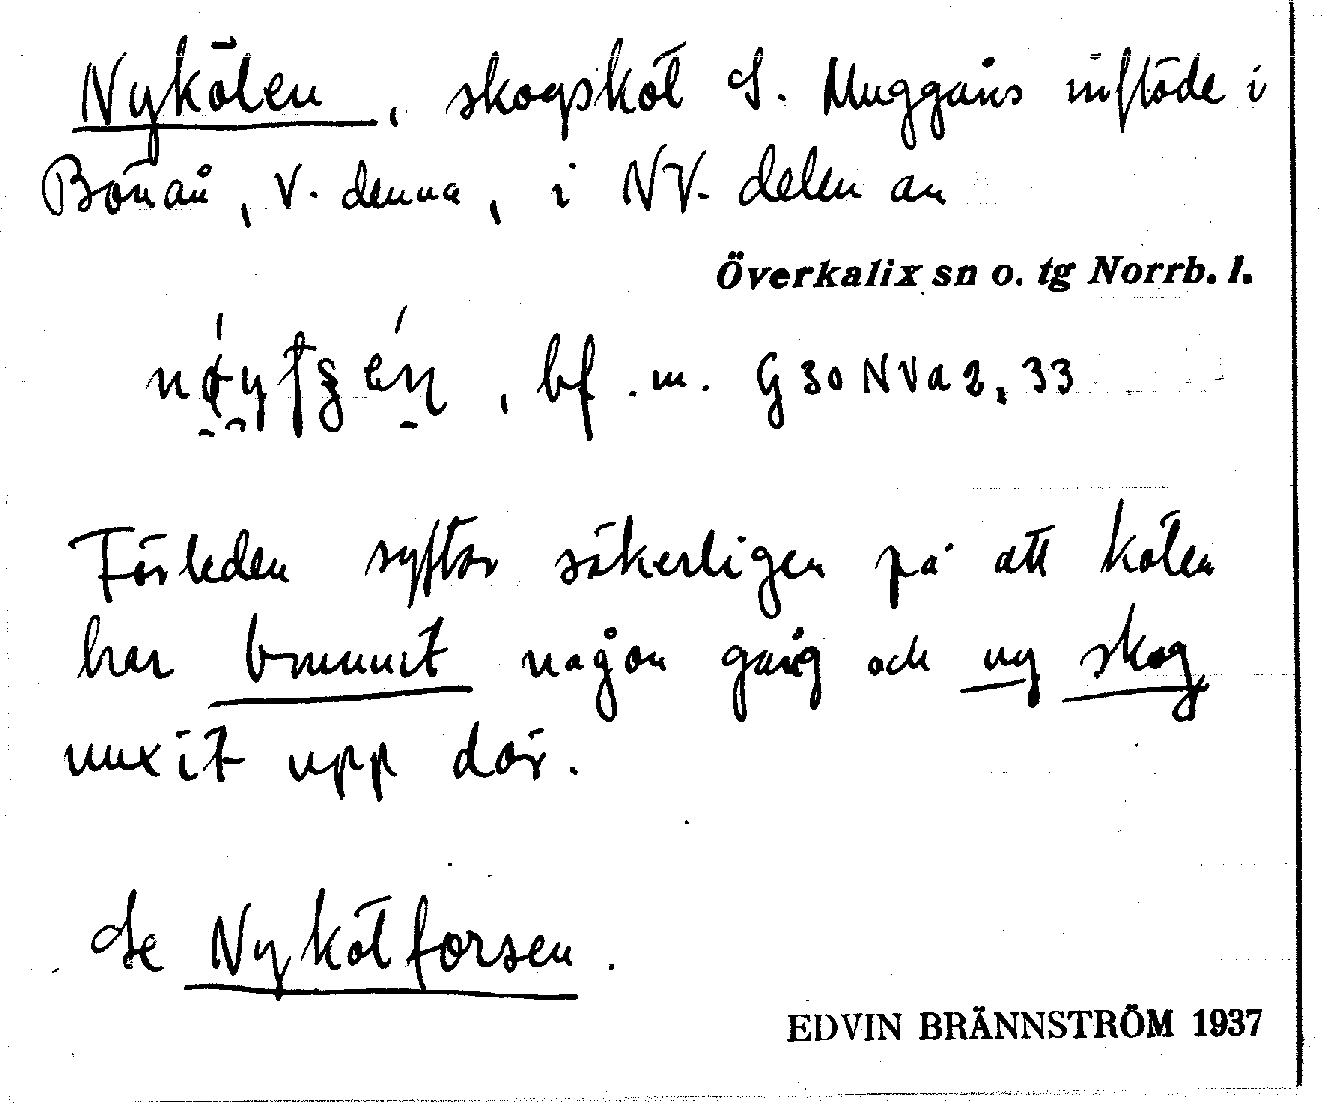 Nykölen, skogsköl S. Muggåns inflöde i
Bönån, V. denna, i NV. delen av
Överkalix sn o. tg Norrb. l.
, bf. m. G 30 NVa 2, 33
Förleden syftar säkerligen på att kölen
har brunnit någon gång och ny skog
vuxit upp där.
Se Nykölforsen.
EDVIN BRÄNNSTRÖM 1937